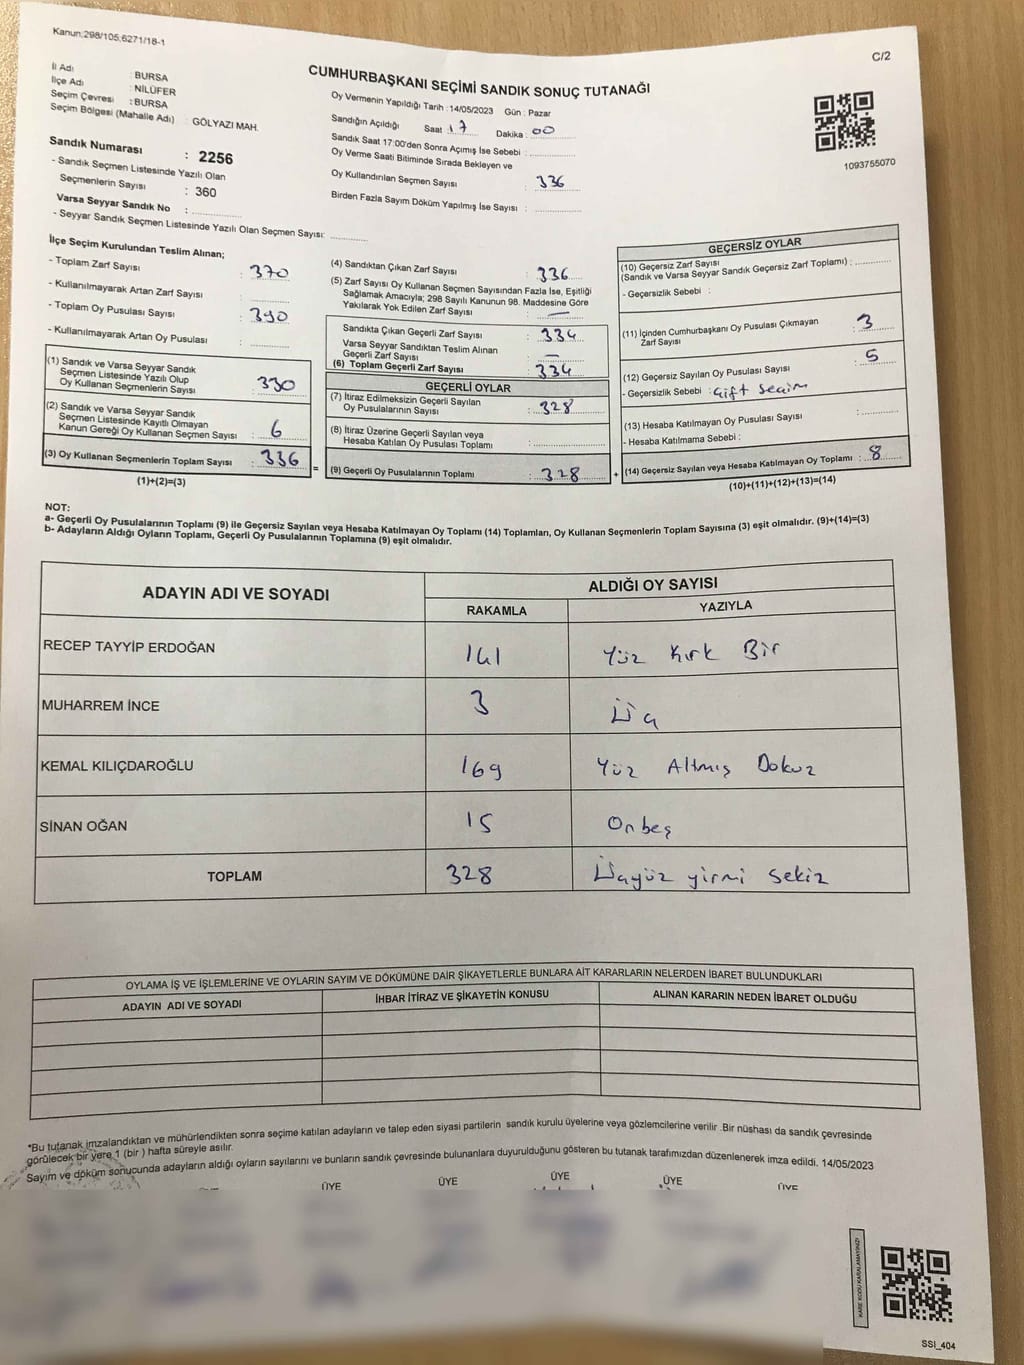 Kanun:298/105;6271/18-1
C/2
CUMHURBAŞKANI SEÇİMİ SANDIK SONUÇ TUTANAĞI
İl Adı : BURSA
İlçe Adı : NİLÜFER
Seçim Çevresi : BURSA
Seçim Bölgesi (Mahalle Adı) : GÖLYAZI MAH.
Sandık Numarası : 2256
- Sandık Seçmen Listesinde Yazılı Olan
Seçmenlerin Sayısı : 360
Varsa Seyyar Sandık No :
- Seyyar Sandık Seçmen Listesinde Yazılı Olan Seçmen Sayısı:
Oy Vermenin Yapıldığı Tarih : 14/05/2023 Gün : Pazar
Sandığın Açıldığı Saat 17 Dakika : 00
Sandık Saat 17:00'den Sonra Açımış İse Sebebi :
Oy Verme Saati Bitiminde Sırada Bekleyen ve
Oy Kullandırılan Seçmen Sayısı : 336
Birden Fazla Sayım Döküm Yapılmış İse Sayısı :
1093755070
İlçe Seçim Kurulundan Teslim Alınan;
- Toplam Zarf Sayısı : 370
- Kullanılmayarak Artan Zarf Sayısı :
- Toplam Oy Pusulası Sayısı : 390
- Kullanılmayarak Artan Oy Pusulası :
(1) Sandık ve Varsa Seyyar Sandık
Seçmen Listesinde Yazılı Olup
Oy Kullanan Seçmenlerin Sayısı : 330
(2) Sandık ve Varsa Seyyar Sandık
Seçmen Listesinde Kayıtlı Olmayan
Kanun Gereği Oy Kullanan Seçmen Sayısı : 6
(3) Oy Kullanan Seçmenlerin Toplam Sayısı : 336
(1)+(2)=(3)
=
(4) Sandıktan Çıkan Zarf Sayısı : 336
(5) Zarf Sayısı Oy Kullanan Seçmen Sayısından Fazla İse, Eşitliği
Sağlamak Amacıyla; 298 Sayılı Kanunun 98. Maddesine Göre
Yakılarak Yok Edilen Zarf Sayısı : —
Sandıkta Çıkan Geçerli Zarf Sayısı : 334
Varsa Seyyar Sandıktan Teslim Alınan
Geçerli Zarf Sayısı : —
(6) Toplam Geçerli Zarf Sayısı : 334
GEÇERLİ OYLAR
(7) İtiraz Edilmeksizin Geçerli Sayılan
Oy Pusulalarının Sayısı : 328
(8) İtiraz Üzerine Geçerli Sayılan veya
Hesaba Katılan Oy Pusulası Toplamı :
(9) Geçerli Oy Pusulalarının Toplamı : 328
+
GEÇERSİZ OYLAR
(10) Geçersiz Zarf Sayısı
(Sandık ve Varsa Seyyar Sandık Geçersiz Zarf Toplamı) :
- Geçersizlik Sebebi :
(11) İçinden Cumhurbaşkanı Oy Pusulası Çıkmayan
Zarf Sayısı : 3
(12) Geçersiz Sayılan Oy Pusulası Sayısı : 5
- Geçersizlik Sebebi : Çift Seçim
(13) Hesaba Katılmayan Oy Pusulası Sayısı :
- Hesaba Katılmama Sebebi :
(14) Geçersiz Sayılan veya Hesaba Katılmayan Oy Toplamı : 8
(10)+(11)+(12)+(13)=(14)
NOT:
a- Geçerli Oy Pusulalarının Toplamı (9) ile Geçersiz Sayılan veya Hesaba Katılmayan Oy Toplamı (14) Toplamları, Oy Kullanan Seçmenlerin Toplam Sayısına (3) eşit olmalıdır. (9)+(14)=(3)
b- Adayların Aldığı Oyların Toplamı, Geçerli Oy Pusulalarının Toplamına (9) eşit olmalıdır.
ADAYIN ADI VE SOYADI ALDIĞI OY SAYISI
RAKAMLA YAZIYLA
RECEP TAYYİP ERDOĞAN 141 Yüz Kırk Bir
MUHARREM İNCE 3 Üç
KEMAL KILIÇDAROĞLU 169 Yüz Altmış Dokuz
SİNAN OĞAN 15 Onbeş
TOPLAM 328 Üçyüz yirmi sekiz
OYLAMA İŞ VE İŞLEMLERİNE VE OYLARIN SAYIM VE DÖKÜMÜNE DAİR ŞİKAYETLERLE BUNLARA AİT KARARLARIN NELERDEN İBARET BULUNDUKLARI
ADAYIN ADI VE SOYADI İHBAR İTİRAZ VE ŞİKAYETİN KONUSU ALINAN KARARIN NEDEN İBARET OLDUĞU
*Bu tutanak imzalandıktan ve mühürlendikten sonra seçime katılan adayların ve talep eden siyasi partilerin sandık kurulu üyelerine veya gözlemcilerine verilir .Bir nüshası da sandık çevresinde
görülecek bir yere 1 (bir ) hafta süreyle asılır.
Sayım ve döküm sonucunda adayların aldığı oyların sayılarını ve bunların sandık çevresinde bulunanlara duyurulduğunu gösteren bu tutanak tarafımızdan düzenlenerek imza edildi. 14/05/2023
ÜYE ÜYE ÜYE ÜYE ÜYE
KARE KODU KARALAMAYINIZ!
SSI_404